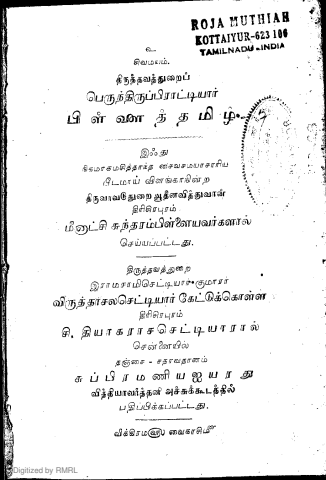 ROJA MUTHIAH
KOTTAIYUR-623 106
TAMILNADU-INDIA
உ
சிவமயம்.
திருத்தவத்துறைப்
பெருந்திருப்பிராட்டியார்
பிள்ளைத்தமிழ்.
இஃது
பீடமாய் விளங்காநின்ற
திருவாவடுதுறை ஆதீனவித்துவான்
திரிசிரபுரம்
மீனாட்சி சுந்தரம்பிள்ளையவர்களால்
செய்யப்பட்டது.
திருத்தவத்துறை
இராமசாமிசெட்டியார் குமாரர்
விருத்தாசலசெட்டியார் கேட்டுக்கொள்ள
திரிசிரபுரம்
சி. தியாகராசசெட்டியாரால்
சென்னையில்
தஞ்சை - சதாவதானம்
சுப்பிரமணியஐயரது
வித்தியாவர்த்தனி அச்சுக்கூடத்தில்
பதிப்பிக்கப்பட்டது.
வைகாசி
Digitized by RMRL